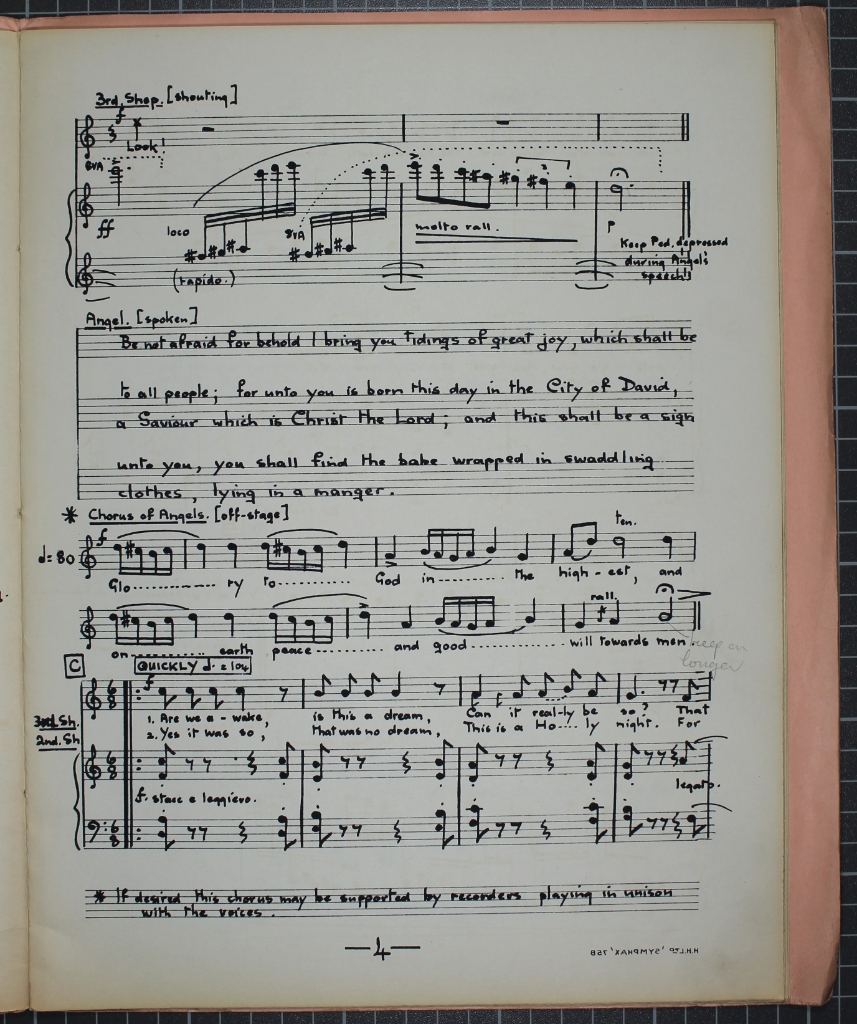 3rd. Shep. [shouting]
f
Look!
8VA
ff
loco
8VA
molto rall.
3
P
(rapido.)
Keep Ped. depressed
during Angel's
speech
Angel. [spoken]
Be not afraid for behold I bring you tidings of great joy, which shall be
to all people; for unto you is born this day in the City of David,
a Saviour which is Christ the Lord; and this shall be a sign
unto you, you shall find the babe wrapped in swaddling
clothes, lying in a manger.
* Chorus of Angels. [off-stage]
f
ten.
d=80
Glo ry to God in the high-est, and
rall.
on earth peace and good will towards men
keep on
longer
C
QUICKLY d. = 104
f
3rd. Sh.
2nd. Sh
1. Are we a-wake, is this a dream, Can it real-ly be so? That
2. Yes it was so, That was no dream, This is a Ho ly night. For
legato.
f. stacc e leggiero.
6/8
* If desired this chorus may be supported by recorders playing in unison
with the voices.
—4—
H.H.LTD. 'SYMPHAX' 75B